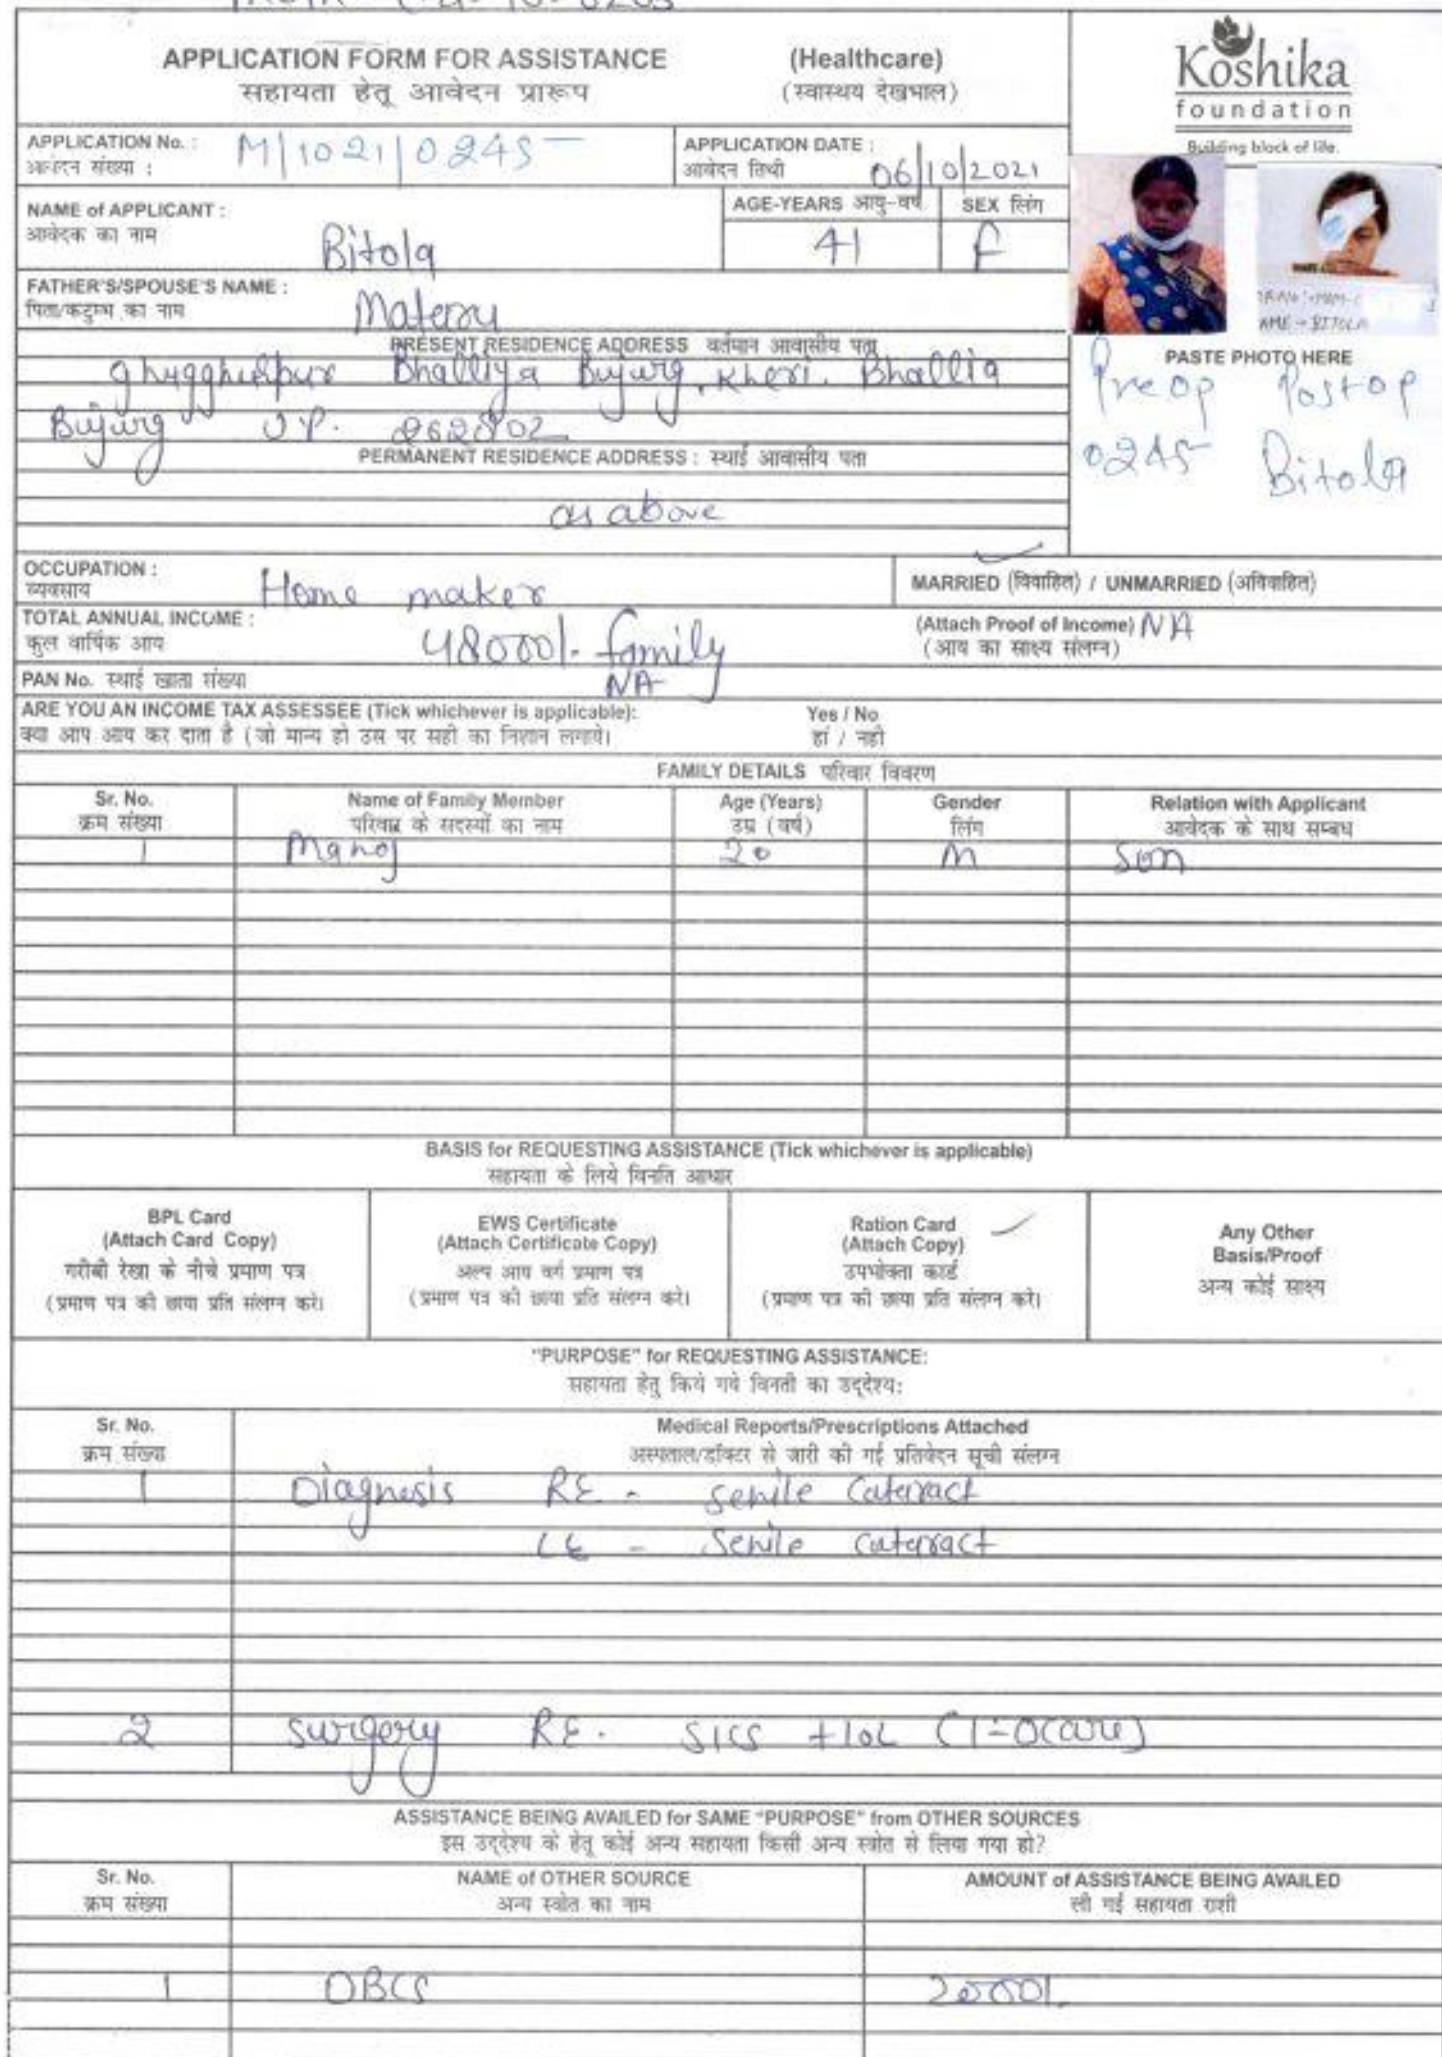 APPLICATION FORM FOR ASSISTANCE (Healthcare)
सहायता हेतू आवेदन प्रारूप (स्वास्थय देखभाल)
Koshika
foundation
Building block of life.
APPLICATION No. :
आवेदन संख्या :
M/1021/0245
APPLICATION DATE :
आवेदन तिथी
06/10/2021
NAME of APPLICANT :
आवेदक का नाम
Bitola
AGE-YEARS आयु-वर्ष
41
SEX लिंग
F
FATHER'S/SPOUSE'S NAME :
पिता/कटुम्भ का नाम
NAME → BITOLA
PASTE PHOTO HERE
Preop Postop
0245 Bitola
PRESENT RESIDENCE ADDRESS वर्तमान आवासीय पता
Bhalliya Bujurg, Kheri. Bhallia
Bujurg U.P. 262802
PERMANENT RESIDENCE ADDRESS : स्थाई आवासीय पता
as above
OCCUPATION :
व्यवसाय
Home maker
MARRIED (विवाहित) / UNMARRIED (अविवाहित)
TOTAL ANNUAL INCOME :
कुल वार्षिक आय
48000/- family
(Attach Proof of Income) NA
(आय का साक्ष्य संलग्न)
PAN No. स्थाई खाता संख्या
NA
ARE YOU AN INCOME TAX ASSESSEE (Tick whichever is applicable): Yes / No
क्या आप आय कर दाता है (जो मान्य हो उस पर सही का निशान लगाये। हां / नही
FAMILY DETAILS परिवार विवरण
Sr. No. Name of Family Member Age (Years) Gender Relation with Applicant
क्रम संख्या परिवार के सदस्यों का नाम उम्र (वर्ष) लिंग आवेदक के साथ सम्बध
1 Manoj 20 M Son
BASIS for REQUESTING ASSISTANCE (Tick whichever is applicable)
सहायता के लिये विनति आधार
BPL Card
(Attach Card Copy)
गरीबी रेखा के नीचे प्रमाण पत्र
(प्रमाण पत्र की छाया प्रति संलग्न करे।
EWS Certificate
(Attach Certificate Copy)
अल्प आय वर्ग प्रमाण पत्र
(प्रमाण पत्र की छाया प्रति संलग्न करे।
Ration Card
(Attach Copy)
उपभोक्ता कार्ड
(प्रमाण पत्र की छाया प्रति संलग्न करे।
Any Other
Basis/Proof
अन्य कोई साक्ष्य
"PURPOSE" for REQUESTING ASSISTANCE:
सहायता हेतु किये गये विनती का उद्देश्य:
Sr. No. Medical Reports/Prescriptions Attached
क्रम संख्या अस्पताल/डॉक्टर से जारी की गई प्रतिवेदन सूची संलग्न
1 Diagnosis RE - Senile Cataract
LE - Senile cataract
2 Surgery RE. SICS + IOL
ASSISTANCE BEING AVAILED for SAME "PURPOSE" from OTHER SOURCES
इस उद्देश्य के हेतू कोई अन्य सहायता किसी अन्य स्त्रोत से लिया गया हो?
Sr. No. NAME of OTHER SOURCE AMOUNT of ASSISTANCE BEING AVAILED
क्रम संख्या अन्य स्त्रोत का नाम ली गई सहायता राशी
1 DBCS 2000/-